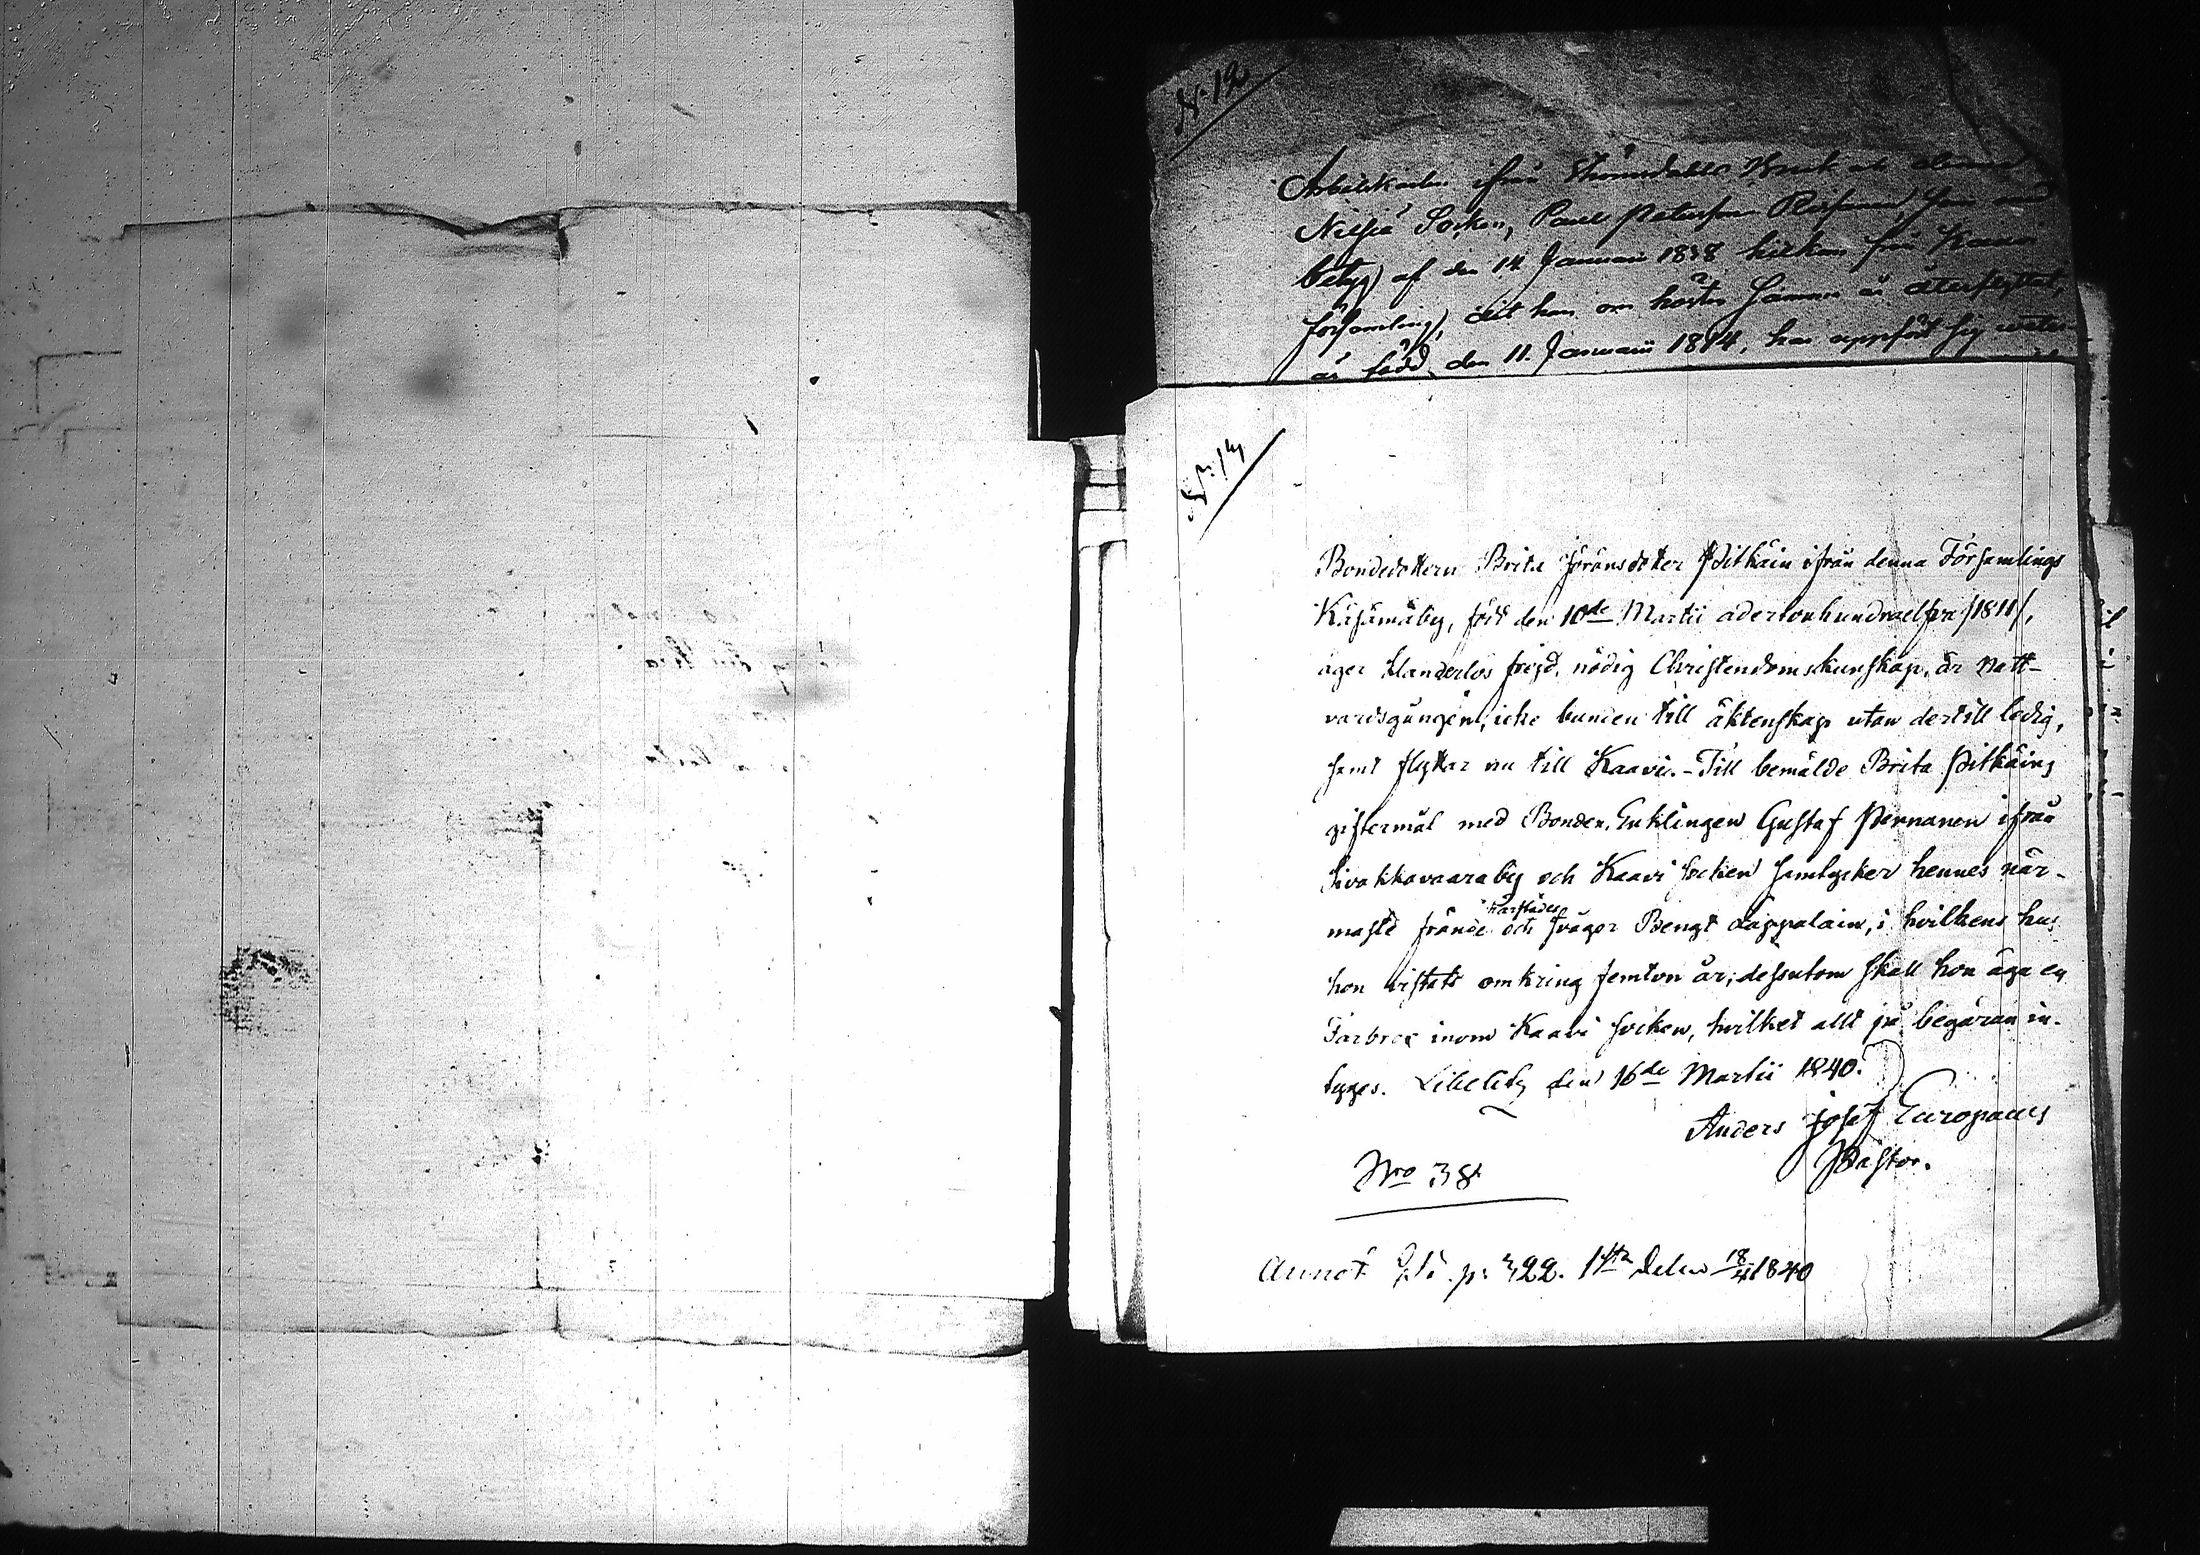 N. 12
Arbetskarlen ifrån Strömsdahls Bruk
Nilsiä Socken, Paul Petersson
betyg af den 14 Januari 1838 från Kaavi
församling, dit han om hösten samma år återflyttat,
är född den 11 Januarii 1814, har uppfört sig
N. 14
Bondedottern Brita Jöransdotter Pitkäin ifrån denna Församlings
Käsämäby, född den 10de Martii adertonhundraelfva /1811/,
äger klanderlös frejd, nödig Christendomskunskap, är Natt-
vardsgången, icke bunden till äktenskap utan dertill ledig,
samt flyttar nu till Kaavi. - Till bemälde Brita Pitkäins
giftermål med Bonden, Enklingen Gustaf Pernanen ifrån
Sivakkavaara by och Kaavi socken samtycker hennes när-
maste frände härstädes och svåger Bengt Lappalain, i hvilkens hus
hon vistats omkring femton år; dessutom skall hon äga en
Farbror inom Kaavi socken, hvilket allt på begäran in-
tyges. Libelits den 16de Martii 1840.
Anders Josef Europaeus
Pastor.
Nro 38
Annot p: 322. 1sta Delen 18/4 1840